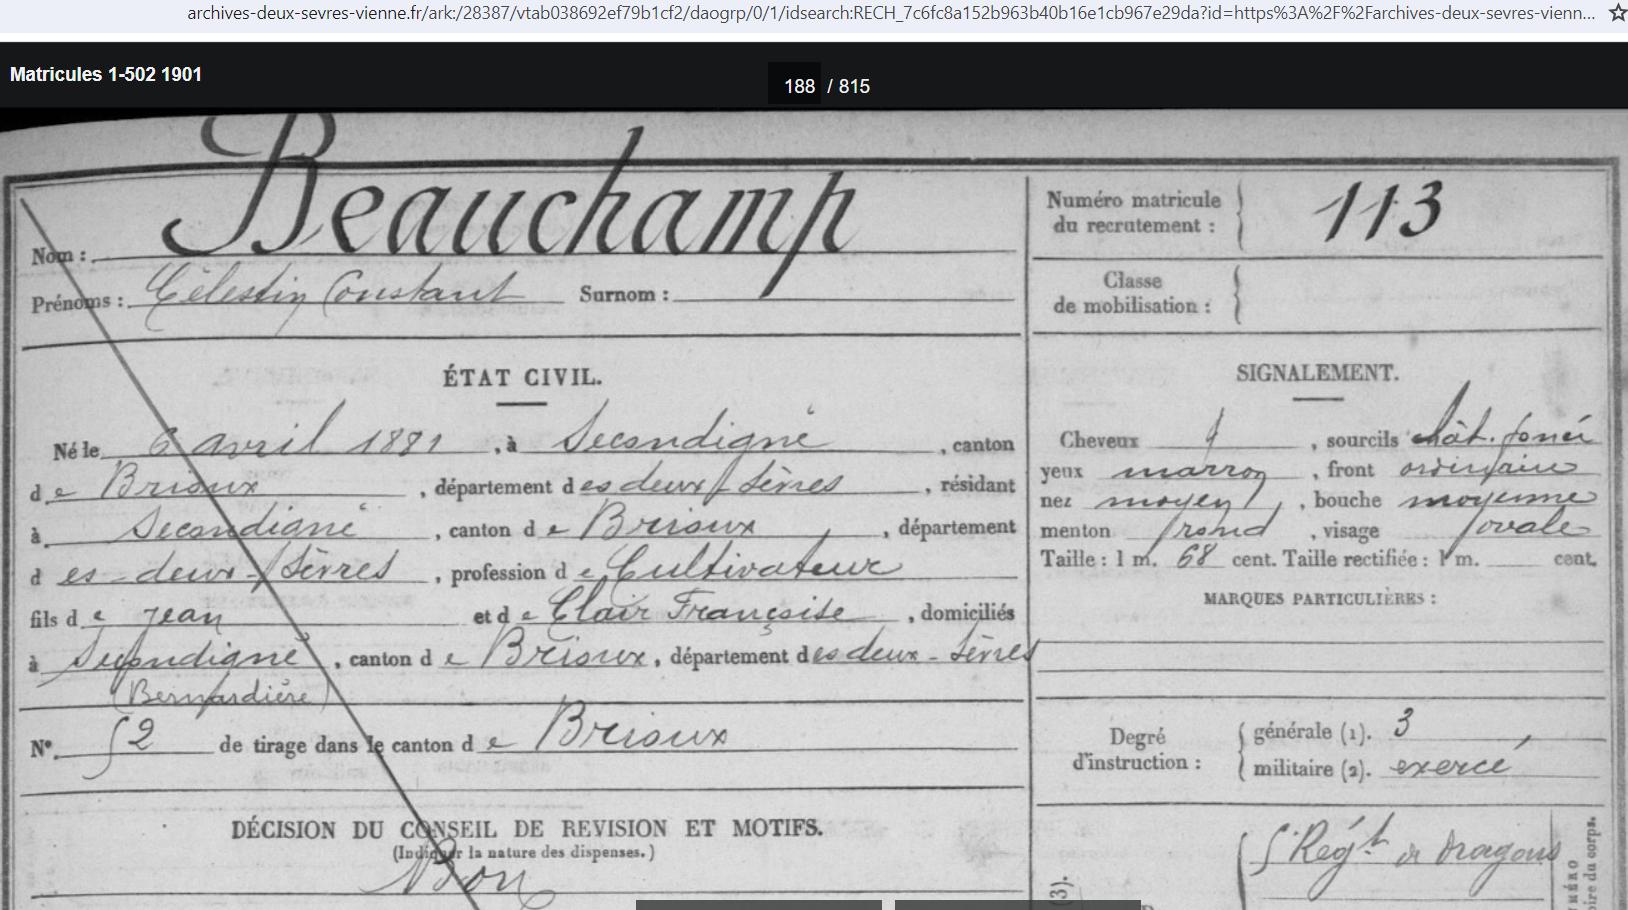 archives-deux-sevres-vienne.fr/ark:/28387/vtab038692ef79b1cf2/daogrp/0/1/idsearch:RECH_7c6fc8a152b963b40b16e1cb967e29da?id=https%3A%2F%2Farchives-deux-sevres-vienn...
Matricules 1-502 1901
188 / 815
Nom : Beauchamp
Prénoms : Célestin Constant Surnom :
ÉTAT CIVIL.
Né le 6 avril 1881, à Secondigné, canton
de Brioux, département des deux-Sèvres, résidant
à Secondigné, canton de Brioux, département
des deux-Sèvres, profession de Cultivateur
fils de jean et de Clair Françoise, domiciliés
à Secondigné, canton de Brioux, département des deux-Sèvres
(Bernardière)
N° 52 de tirage dans le canton de Brioux
DÉCISION DU CONSEIL DE REVISION ET MOTIFS.
(Indiquer la nature des dispenses.)
Bon
Numéro matricule
du recrutement : 113
Classe
de mobilisation :
SIGNALEMENT.
Cheveux, sourcils chât. foncé
yeux marron, front ordinaire
nez moyen, bouche moyenne
menton rond, visage ovale
Taille : 1 m. 68 cent. Taille rectifiée : 1 m. cent.
MARQUES PARTICULIÈRES :
Degré
d'instruction :
générale (1). 3
militaire (2). exercé
Rég.t de Dragons
(3).
NUMÉRO